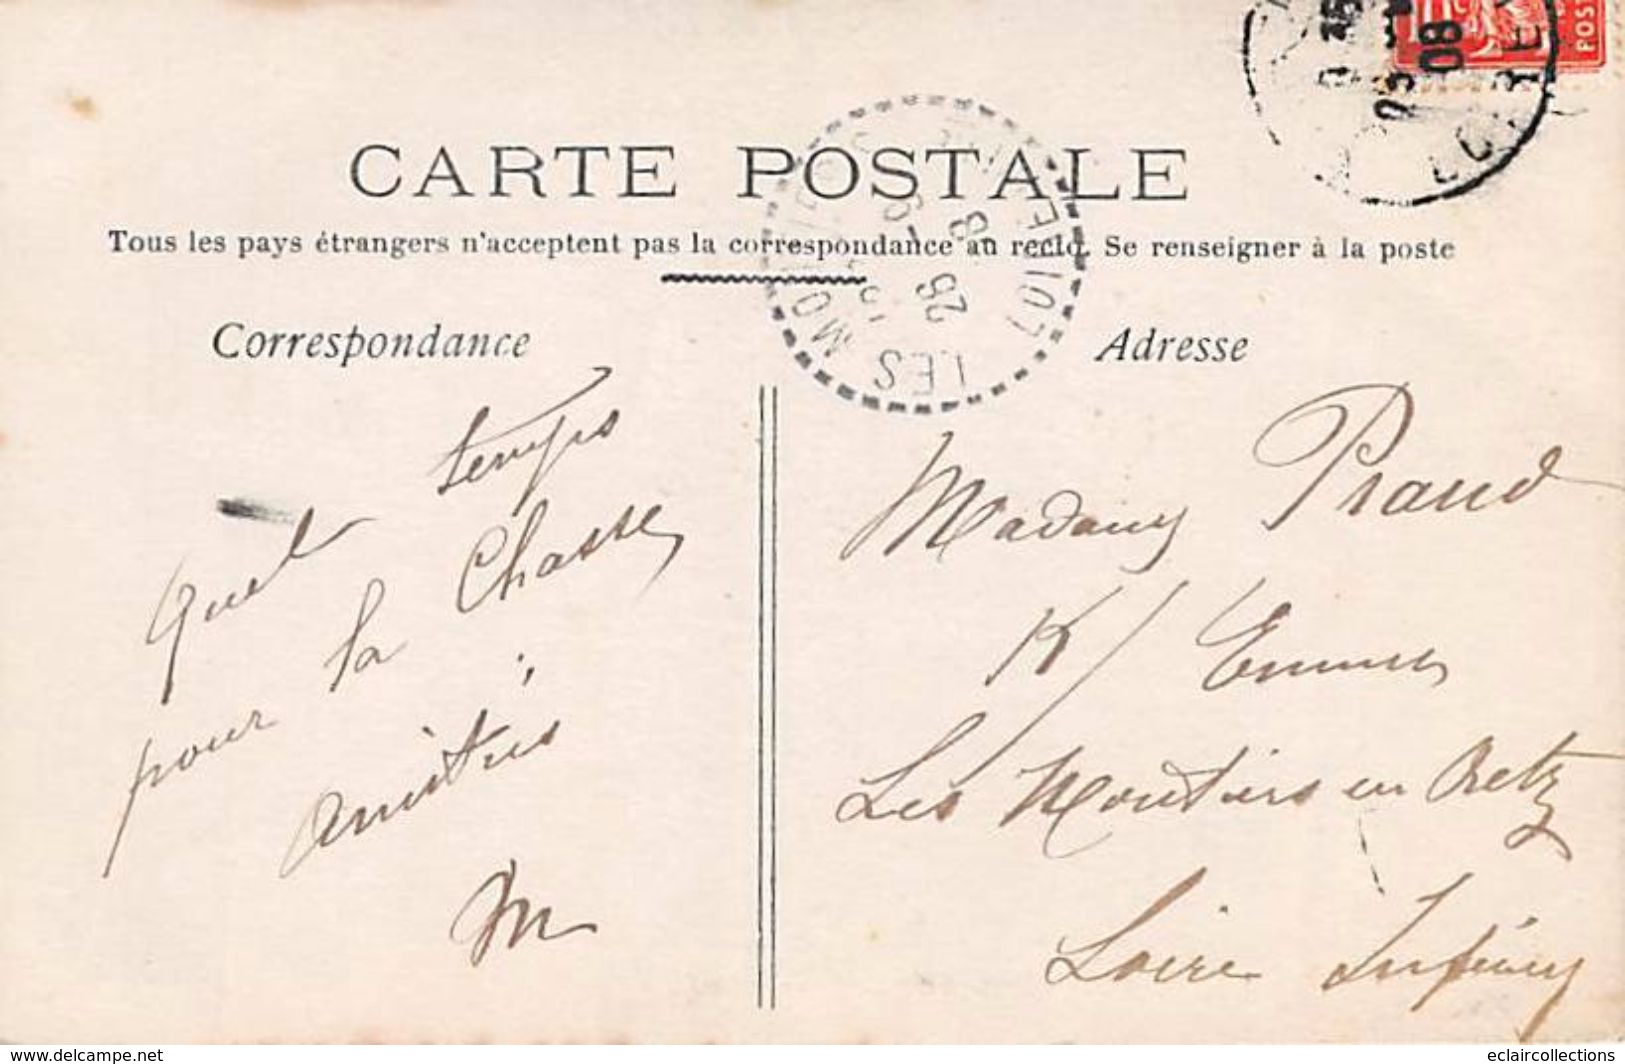 CARTE POSTALE
Tous les pays étrangers n'acceptent pas la correspondance au recto. Se renseigner à la poste
Correspondance
Quel temps
pour la chasse,
amitiés
M
Adresse
Madame Praud
K/ Emma
Les Moutiers en Retz
Loire Inférieure
LES MOUTIERS
LOIRE INF
25
08
POS
www.delcampe.net
eclaircollections